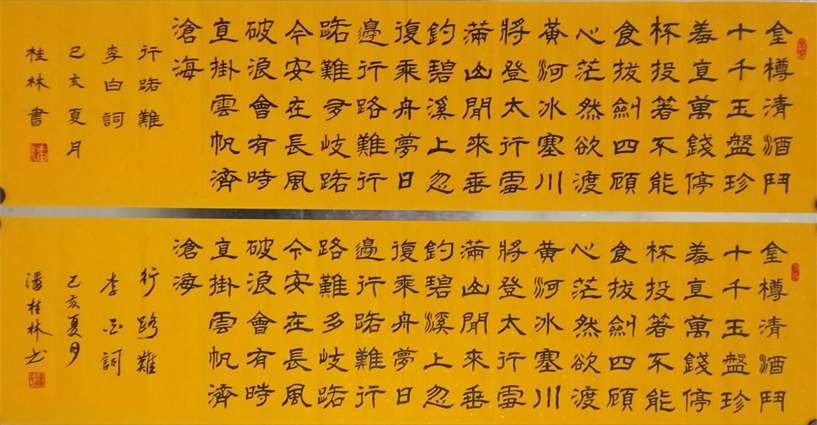 金樽清酒鬥
十千玉盤珍
羞直萬錢停
杯投箸不能
食拔劍四顧
心茫然欲渡
黃河冰塞川
將登太行雪
滿山閒來垂
釣碧溪上忽
復乘舟夢日
邊行路難行
路難多岐路
今安在長風
破浪會有時
直掛雲帆濟
滄海
行路難
李白詞
己亥夏月
桂林書
金樽清酒鬥
十千玉盤珍
羞直萬錢停
杯投箸不能
食拔劍四顧
心茫然欲渡
黃河冰塞川
將登太行雪
滿山閒來垂
釣碧溪上忽
復乘舟夢日
邊行路難行
路難多岐路
今安在長風
破浪會有時
直掛雲帆濟
滄海
行路難
李白詞
己亥夏月
潘桂林书